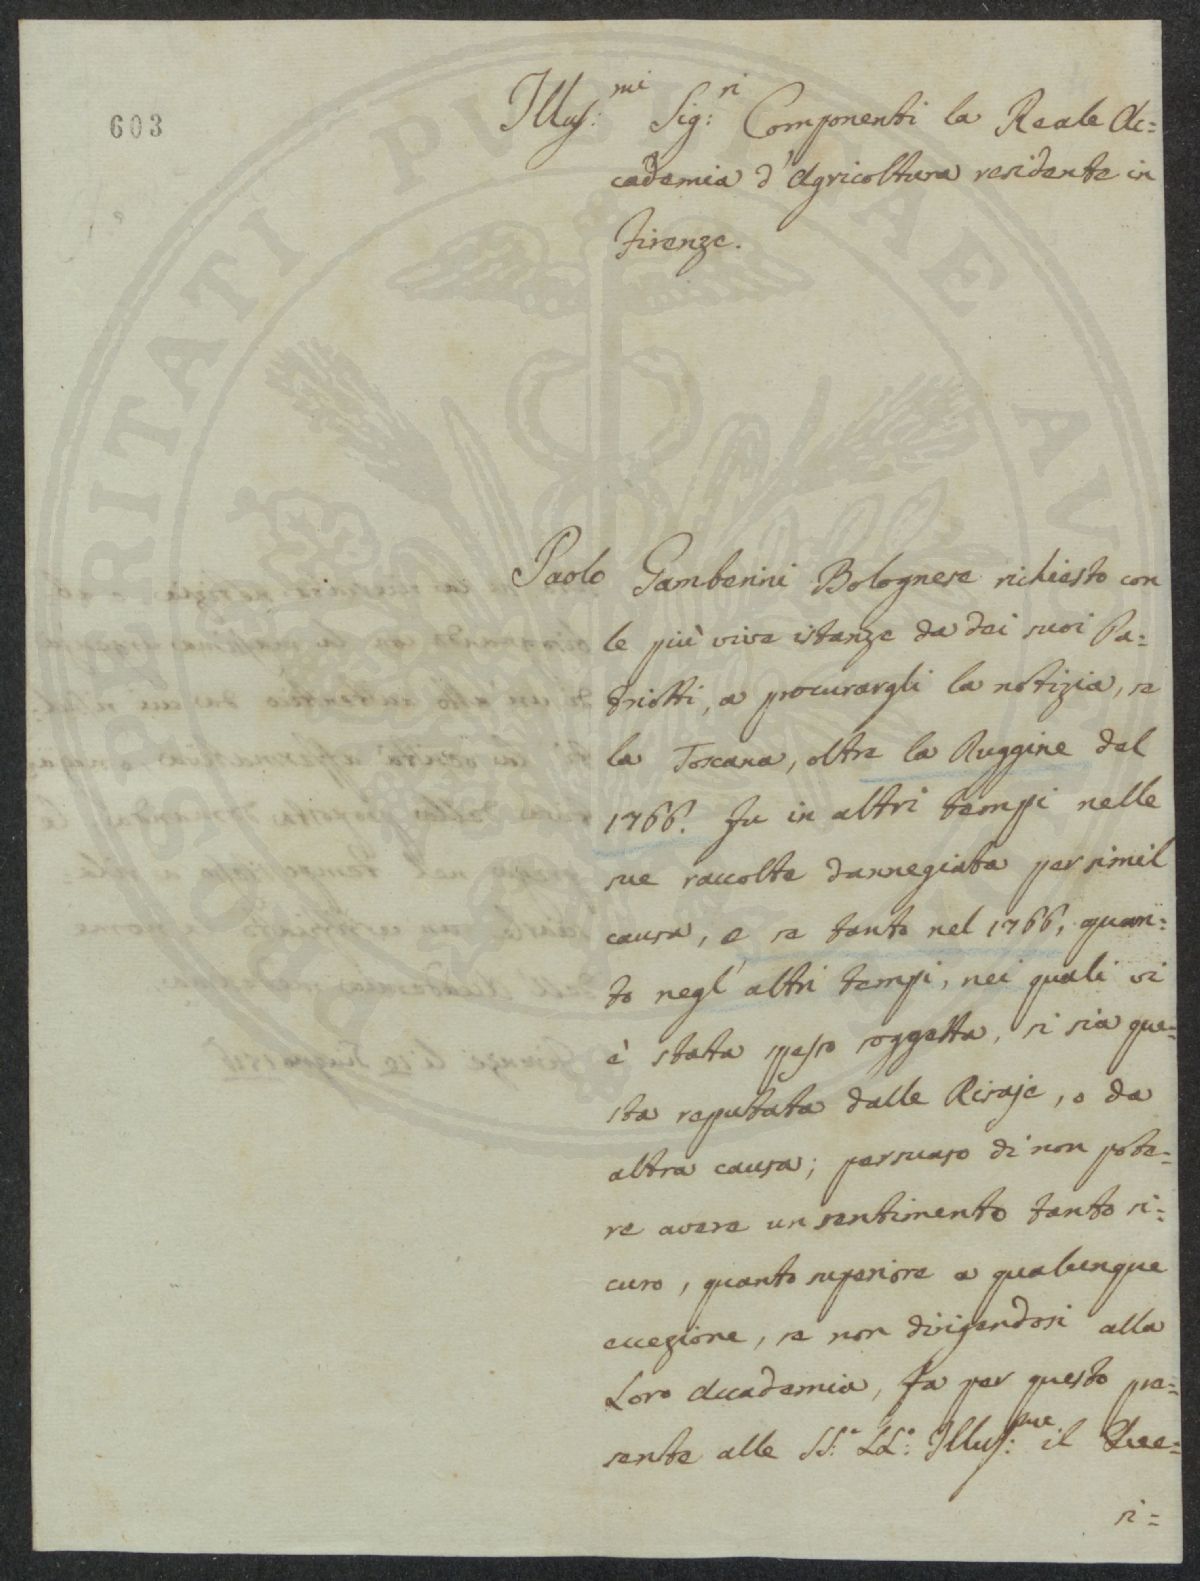 603
Illus:mi Sig:ri Componenti la Reale Ac=
cademia d'Agricoltura residente in
Firenze.
Paolo Gamberini Bolognese richiesto con
le più vive istanze da dei suoi Pa=
triotti, a procurargli la notizia, se
la Toscana, oltre la Ruggine del
1766. fu in altri tempi nelle
sue raccolte dannegiata per simil
causa, e se tanto nel 1766, quan=
to negl'altri tempi, nei quali vi
è stata spesso soggetta, si sia que=
sta reputata dalle Risaje, o da
altra causa; persuaso di non pote=
re avere un sentimento tanto si=
curo, quanto superiore a qualunque
eccezione, se non dirigendosi alla
Loro Accademia, fa per questo pre=
sente alle SS.e LL.e Illus:me il
si=
PROSPERITATI PUBLICAE AU